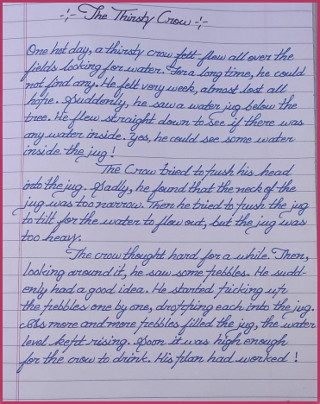 -:- The Thirsty Crow -:-
One hot day, a thirsty crow felt flew all over the
fields looking for water. For a long time, he could
not find any. He felt very week, almost lost all
hope. Suddenly, he saw a water jug below the
tree. He flew straight down to see if there was
any water inside. Yes, he could see some water
inside the jug!
The Crow tried to push his head
into the jug. Sadly, he found that the neck of the
jug was too narrow. Then he tried to push the jug
to tilt for the water to flow out, but the jug was
too heavy.
The crow thought hard for a while. Then,
looking around it, he saw some pebbles. He sudd-
enly had a good idea. He started picking up
the pebbles one by one, dropping each into the jug.
As more and more pebbles filled the jug, the water
level kept rising. Soon it was high enough
for the crow to drink. His plan had worked!